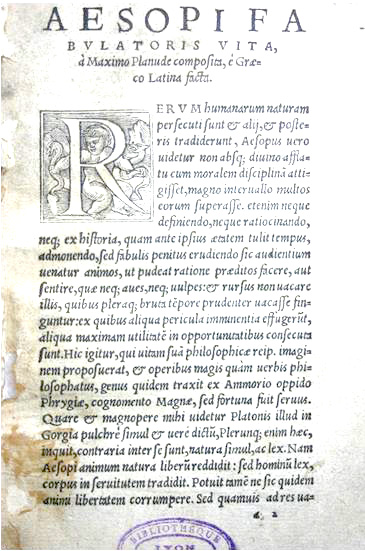 AESOPI FA
BVLATORIS VITA,
à Maximo Planude composita, è Græ-
co Latina facta.
RERVM humanarum naturam
persecuti sunt & alij, & poste-
ris tradiderunt, Aesopus uero
uidetur non absq; diuino affla-
tu cum moralem disciplinā atti-
gisset, magno interuallo multos
eorum superasse. etenim neque
definiendo, neque ratiocinando,
neq; ex historia, quam ante ipsius ætatem tulit tempus,
admonendo, sed fabulis penitus erudiendo sic audientium
uenatur animos, ut pudeat ratione præditos facere, aut
sentire, quæ neq; aues, neq; uulpes: & rursus non uacare
illis, quibus pleraq; bruta tēpore prudenter uacasse fin-
guntur: ex quibus aliqua pericula imminentia effugerūt,
aliqua maximam utilitatē in opportunitatibus consecuta
sunt. Hic igitur, qui uitam suā philosophicæ reip. imagi-
nem proposuerat, & operibus magis quàm uerbis phi-
losophatus, genus quidem traxit ex Ammorio oppido
Phrygiæ, cognomento Magnæ, sed fortuna fuit seruus.
Quare & magnopere mihi uidetur Platonis illud in
Gorgia pulchrè simul & uerè dictū, Plerunq; enim hæc,
inquit, contraria inter se sunt, natura simul, ac lex. Nam
Aesopi animum natura liberū reddidit: sed hominū lex,
corpus in seruitutem tradidit. Potuit tamē ne sic quidem
animi libertatem corrumpere. Sed quamuis ad res ua-
a. 2
BIBLIOTHEQUE
LYON